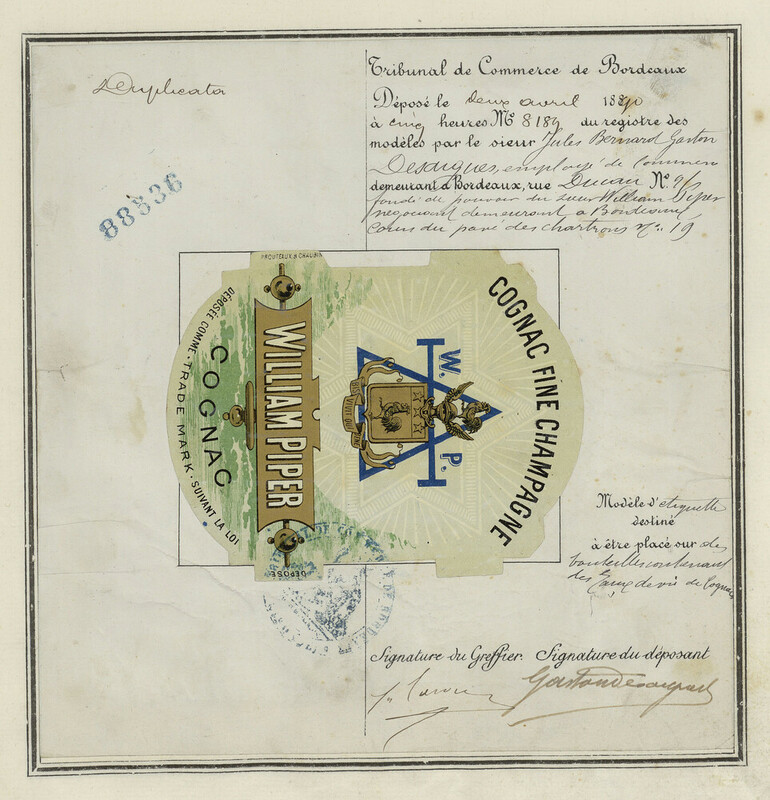 Duplicata
88536
Tribunal de Commerce de Bordeaux
Déposé le deux avril 18
à cinq heures No 8189 du registre des
modèles par le sieur Jules Bernard Gaston
employé de Commerce
demeurant à Bordeaux, rue Ducau No.
fondé de pouvoir du sieur William Piper
négociant demeurant à Bordeaux
Cours du pavé des chartrons No. 19
PROUTEAUX & CHAUBIN
COGNAC FINE CHAMPAGNE
W. P.
WILLIAM PIPER
COGNAC
DÉPOSÉE COMME · TRADE MARK · SUIVANT LA LOI
DÉPOSÉ
Modèle d'étiquette
destiné
à être placé sur des
bouteilles contenant
des Eaux de vie de Cognac
Signature du Greffier. Signature du déposant